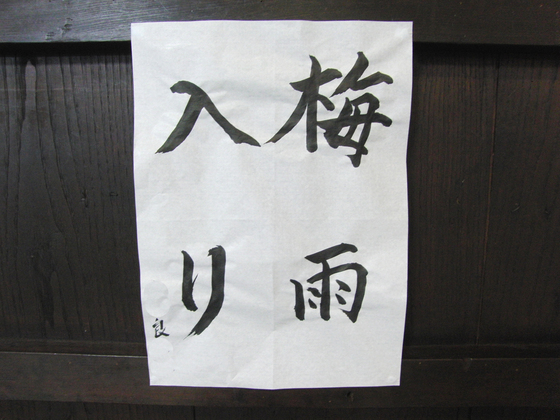 梅雨
入り
良